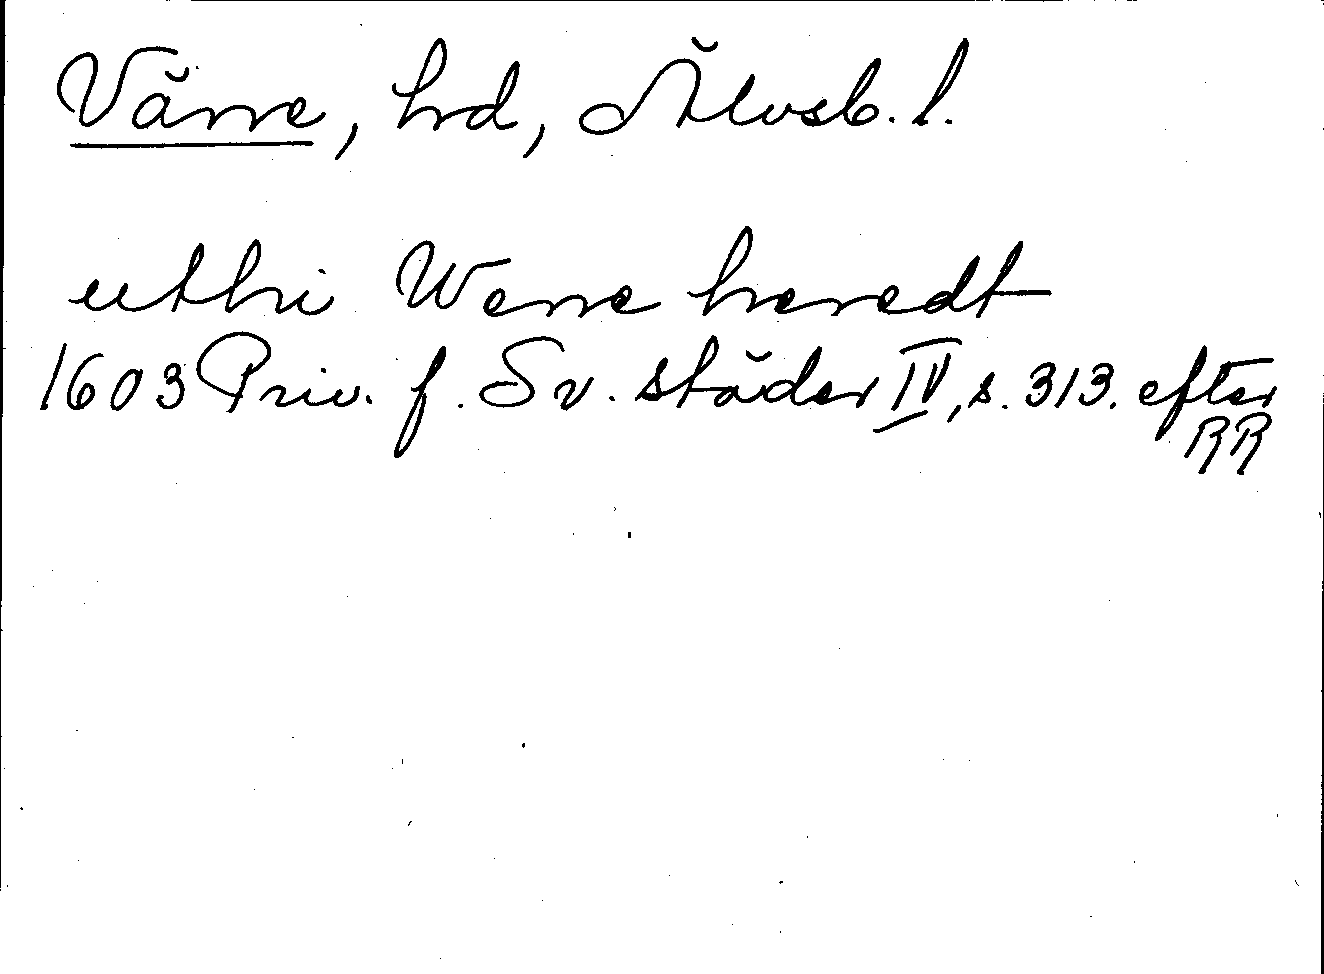 Väne, hd, Älvsb. l.
uthi Wene heredt
1603 Priv. f. Sv. städer IV, s. 313. efter
RR